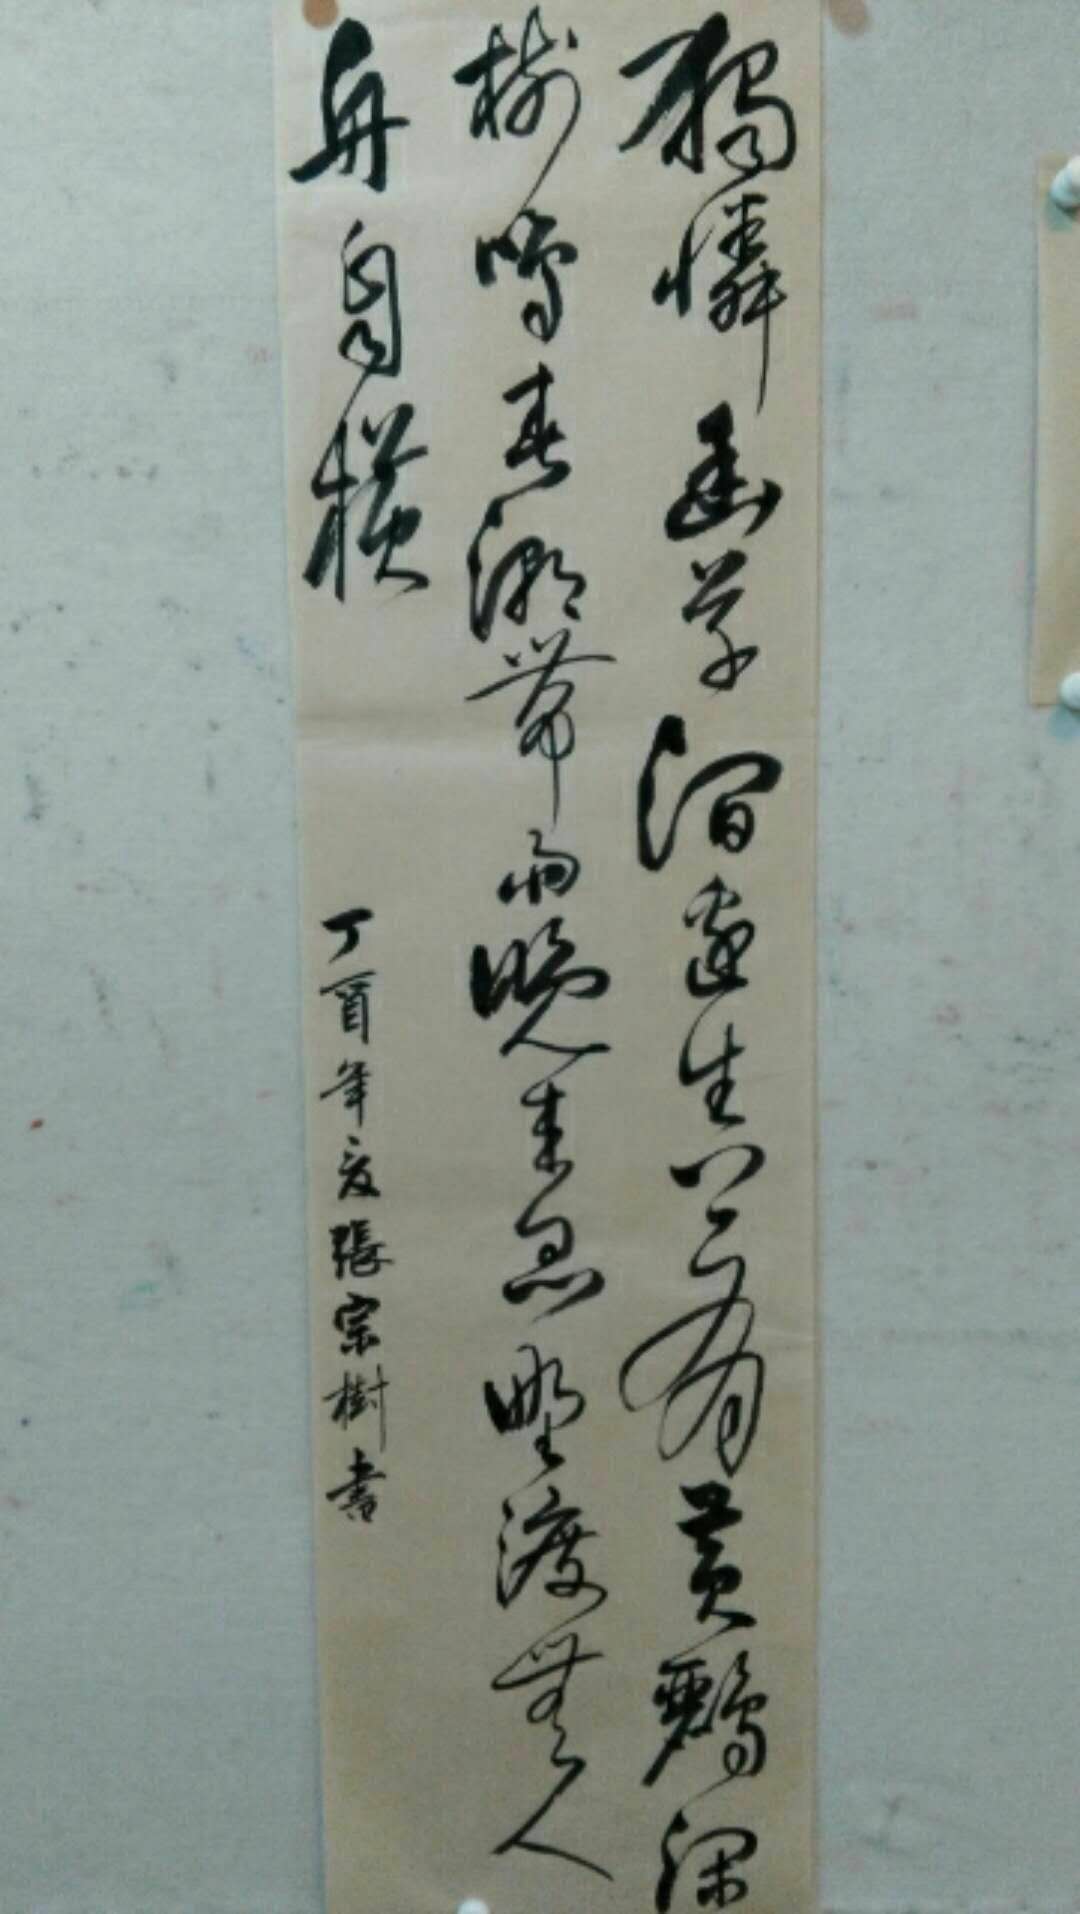 獨憐幽草澗邊生上有黃鸝深
樹鳴春潮帶雨晚來急野渡無人
舟自橫
丁酉年夏張宗樹書